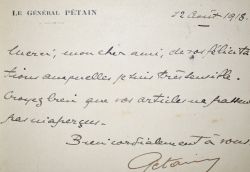 LE GÉNÉRAL PÉTAIN
12 Août 1918.
Merci, mon cher ami, de vos félicita
tions auxquelles je suis très sensible.
Croyez bien que vos articles ne passent
pas inaperçus.
Bien cordialement à vous
Pétain